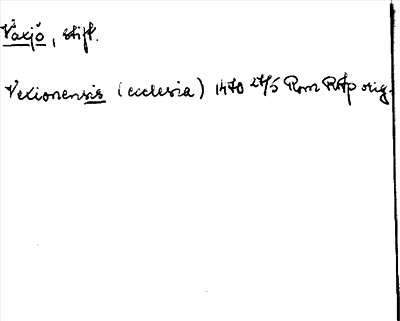 Växjö, stift.
Vexionensis (ecclesia) 1470 27/5 Rom RAp orig.